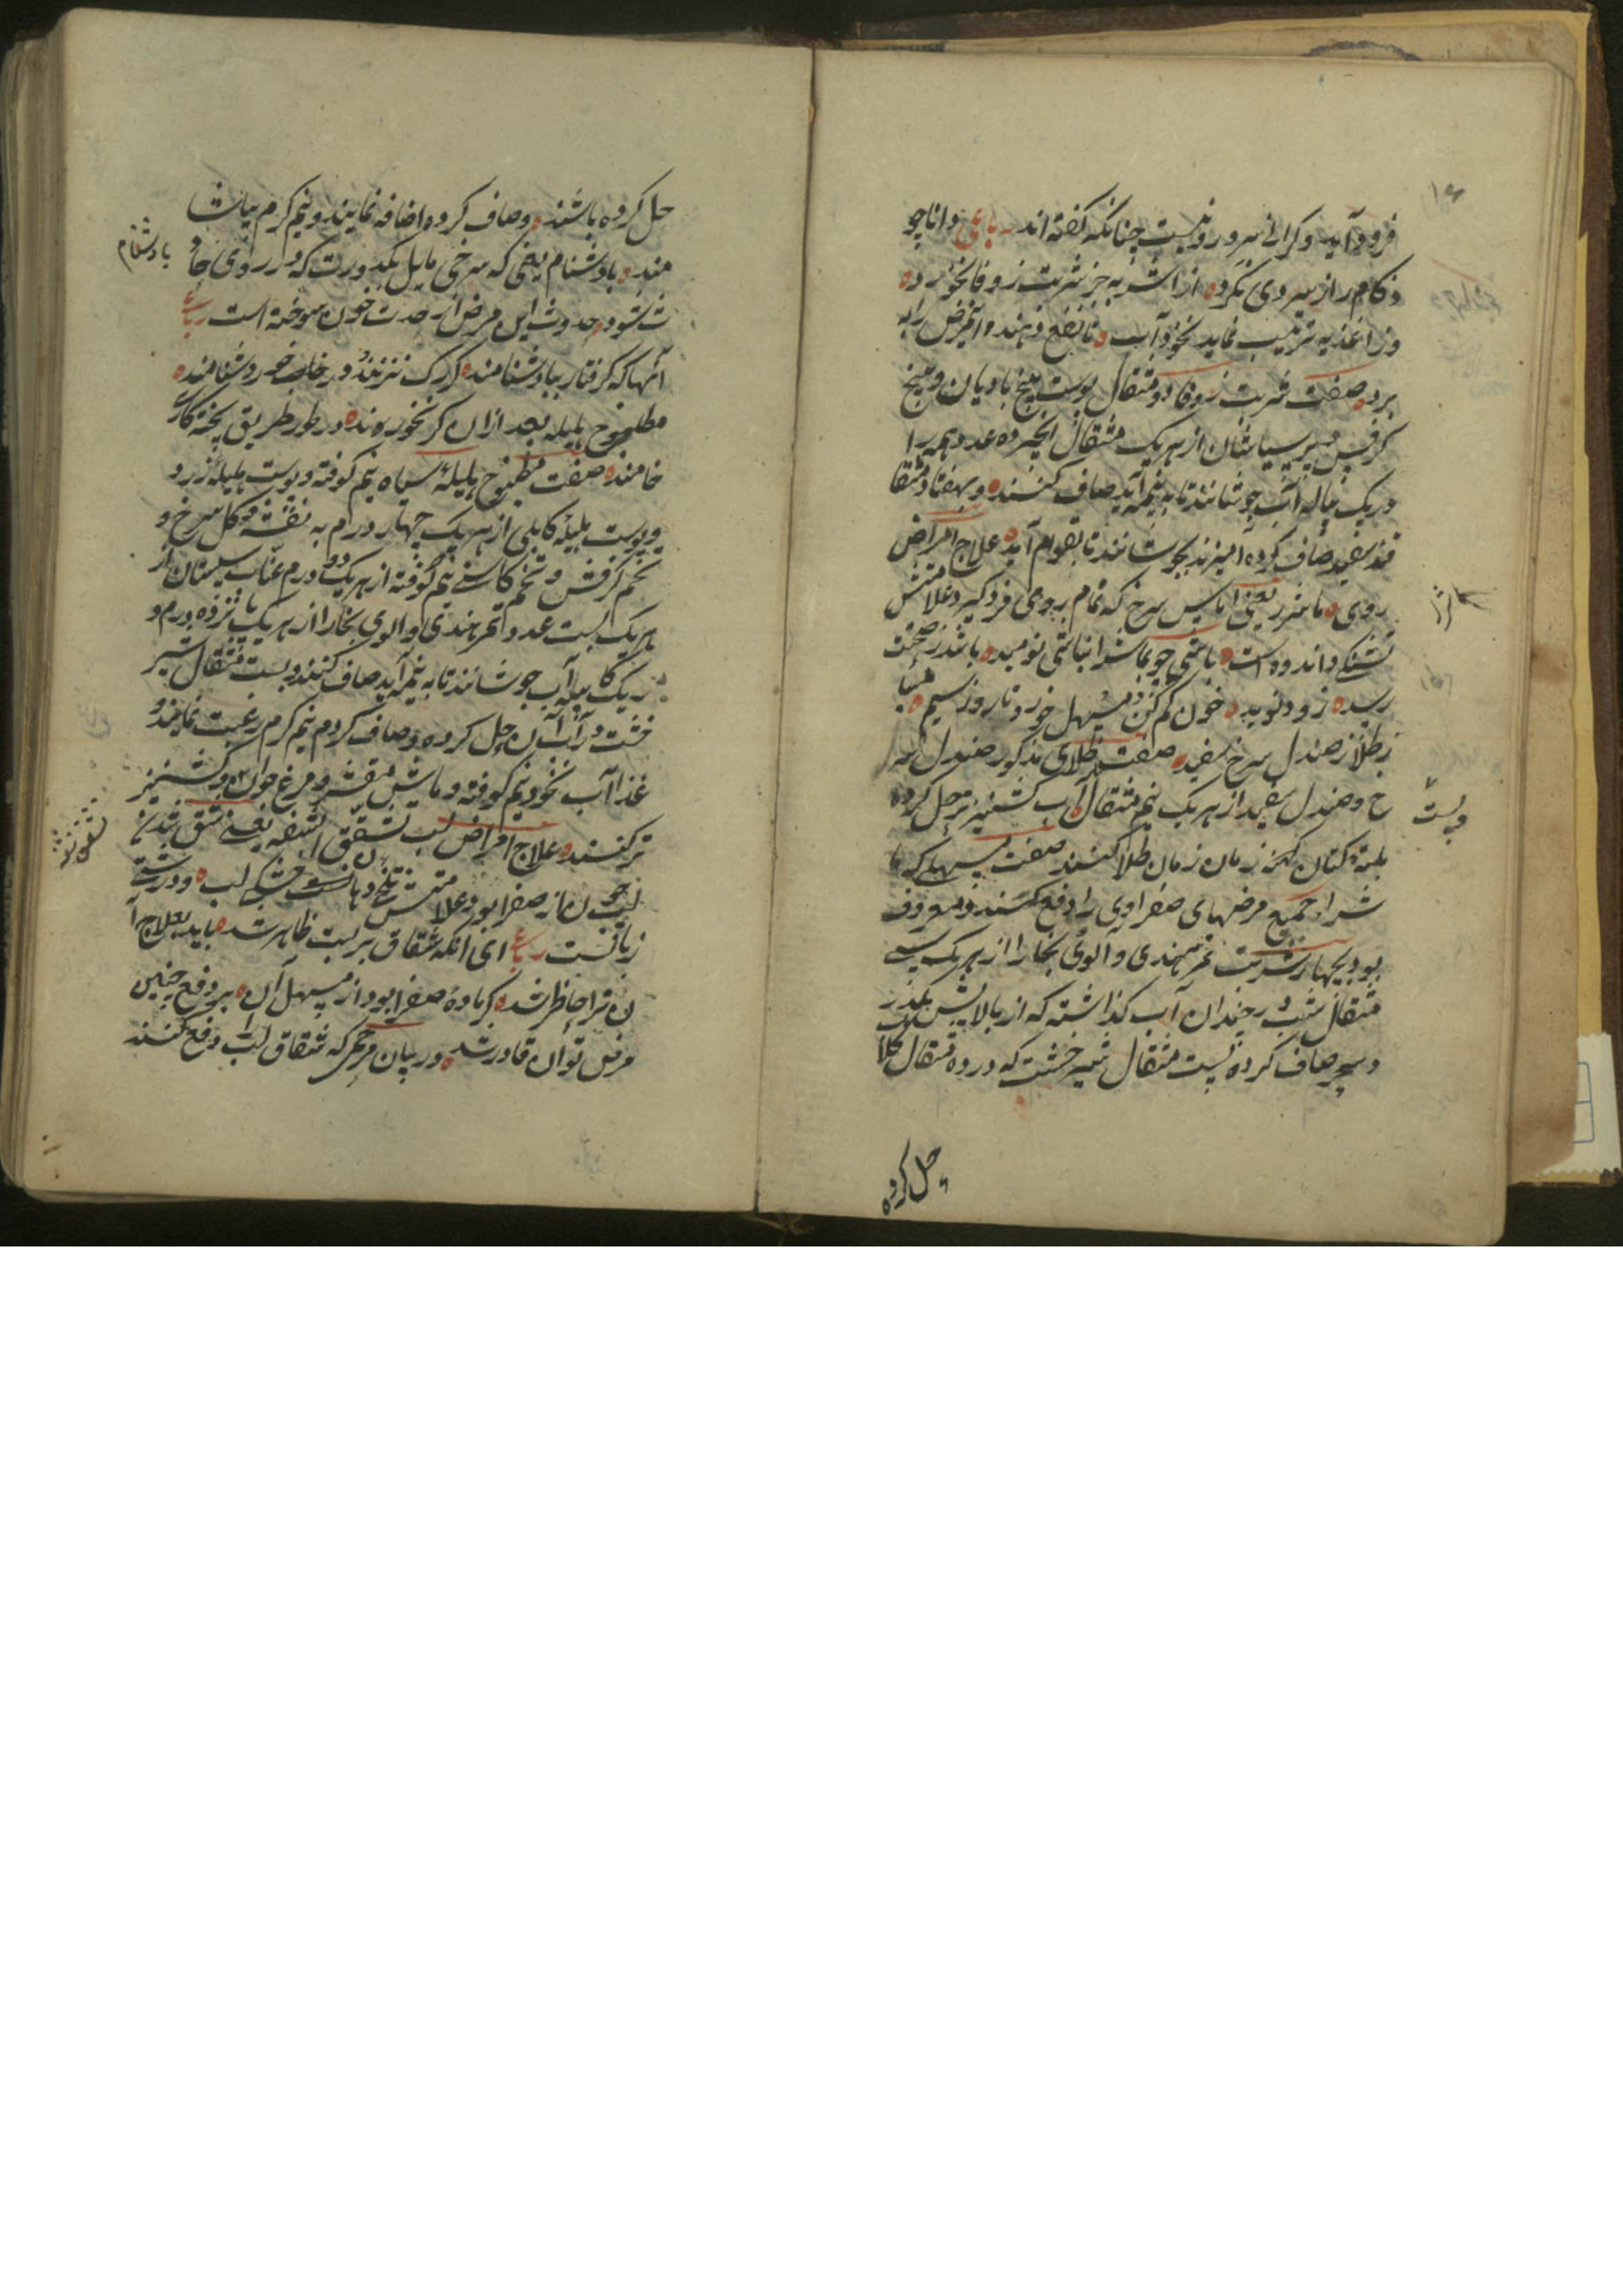 فرود آید و کرانی سر و روی نیست چنانکه گفته اند رباعی دانا چو
زکام را ز سردی نکرد از اشربه جز شربت زوفا نخورد
وز اغذیه ترتیب نماید نخودآب تا نفع دهند و این مرض را به
برد صفت شربت زوفا دو مثقال پوست بیخ بادیان و بیخ
کرفس و پرسیاشان از هر یک مثقال انجیر ده عدد همه را
در یک پیاله آب جوشانند تا به نیمه آید صاف کنند و بهفتاد مثقا
قند سفید صاف کرده آمیزند بجوشانند تا بقوام آید علاج امراض
روی ماشرا یعنی آماس سرخ که تمام بروی فرو گیرد علامتش
تشنکی و اندوه است باشی چو بماشرا نباشی نومید باشد ز صحت
رسیده زود نوید خون کم کن و مسهل خور و تا روز سیم میسا
ز طلا ز صندل سرخ سفید صفت طلای مذکور صندل سر
خ و صندل سفید از هر یک نیم مثقال بآب کشنیز تر حل کرده
بلته کتان کهنه زمان زمان طلا کنند صفت مسهلی که ما
شرا و جمیع مرضهای صفراوی را دفع کند و معروف
بود بچهار شربت تمر هندی و الوی بخارا از هر یک سی
مثقال شب در چندان آب گذاشته که از بالایش بگذرد
و سحر صاف کرده بیست مثقال شیر خشت که در ده مثقال کلاب
حل کرده
حل کرده باشند و صاف کرده اضافه نمایند و نیم کرم بیاشا
مند بادشنام یعنی که سرخی مایل بکدورت که در روی حاد
بادشنام
ث شود حدوث این مرض از حدت خون سوخته است رباعی
آنها که کرفتار ببادشنامند کر رک نزنند در خلاب خود شنامند
مطبوخ هلیله بعد ازان کر نخورند در طور طریق پخته کاری
خامند صفت مطبوخ هلیله سیاه نیم کوفته و پوست هلیله زرد
و پوست هلیله کابلی از هر یک چهار درم بنفشه و کل سرخ و
تخم کرفس و تخم کاسنی نیم کوفته از هر یک دو درم عناب سپستان از
هر یک بیست عدد تمر هندی و الوی بخارا از هر یک پانزده درم و
در یک کاسه آب جوشانند تا به نیمه آید صاف کنند و بیست مثقال شیر
خشت در آن آب حل کرده و صاف کردم نیم کرم رغبت نمایند و
غذا آب نخود نیم کوفته و ماش مقشر و مرغ جوان و کشنیز
تر کنند علاج امراض لب تشقق الشفه یعنی شق شدن
لب چون از صفرا بود علامتش تلخی دهان است خشکی لب و درشتی
زبانست رباعی ای آنکه شقاق بر لبت ظاهر شد باید بعلاج آ
ن ترا خاطر شد کر ماده صفرا بود از مسهل آن بر دفع چنین
مرض توان قادر شد در بیان مرهمی که شقاق لب را دفع کند